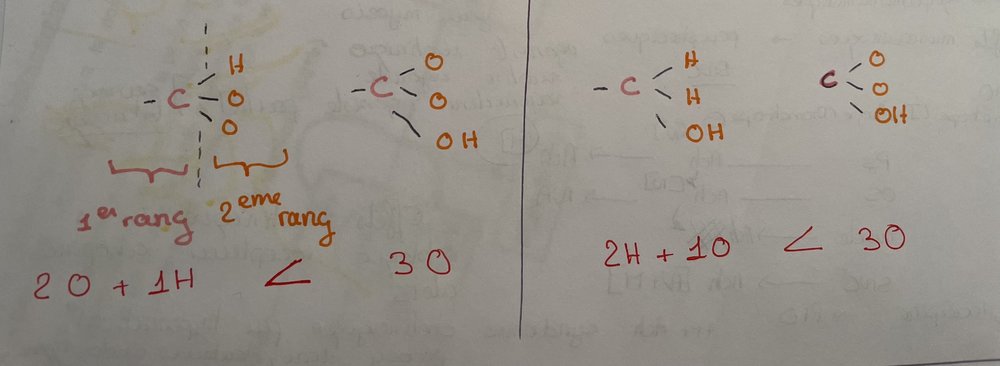 - C H O O
- C O O OH
1er rang
2eme rang
2 O + 1H < 3 O
- C H H OH
C O O OH
2H + 1O < 3O